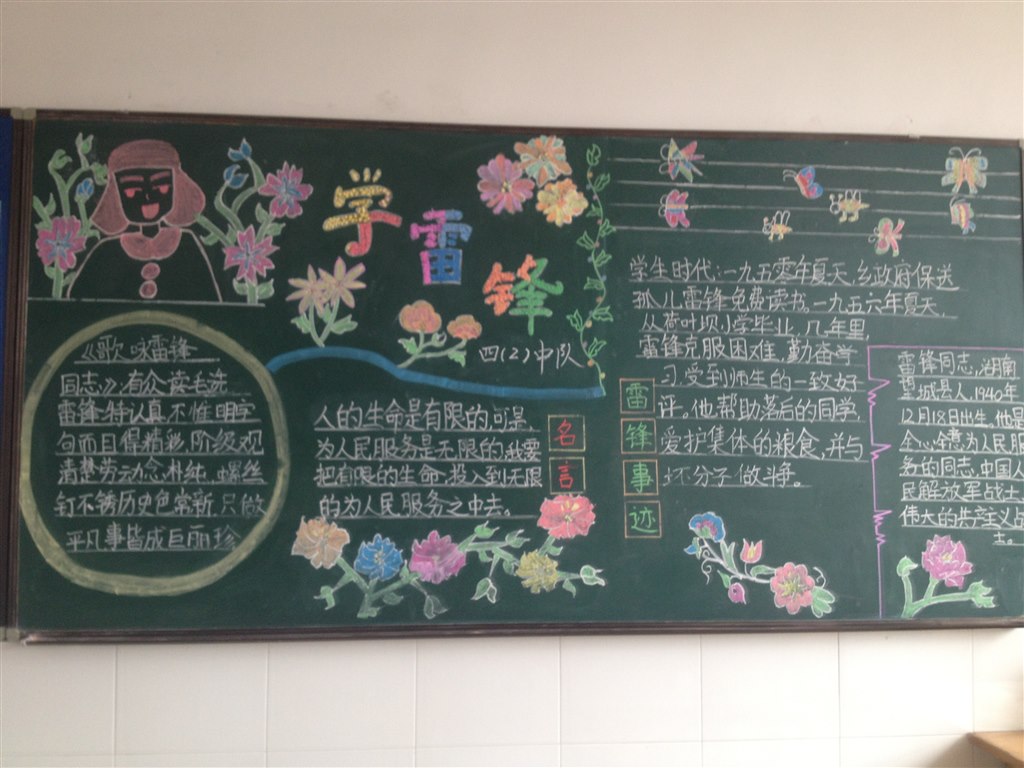 学雷锋
四(2)中队
《歌咏雷锋
同志》:有众读毛选
雷锋特认真不惟明字
句而且得精彩阶级观
清楚劳动念朴纯螺丝
钉不锈历史色常新只做
平凡事皆成巨丽珍
人的生命是有限的,可是,
为人民服务是无限的,我要
把有限的生命,投入到无限
的为人民服务之中去。
名言
学生时代:一九五零年夏天,乡政府保送
孤儿雷锋免费读书,一九五六年夏天,
从荷叶坝小学毕业,几年里,
雷锋克服困难,勤奋学
习,受到师生的一致好
评。他帮助落后的同学,
爱护集体的粮食,并与
坏分子做斗争。
雷锋事迹
雷锋同志,湖南
望城县人,1940年
12月18日出生。他是
全心意为人民服
务的同志,中国人
民解放军战士,
伟大的共产主义战
士。